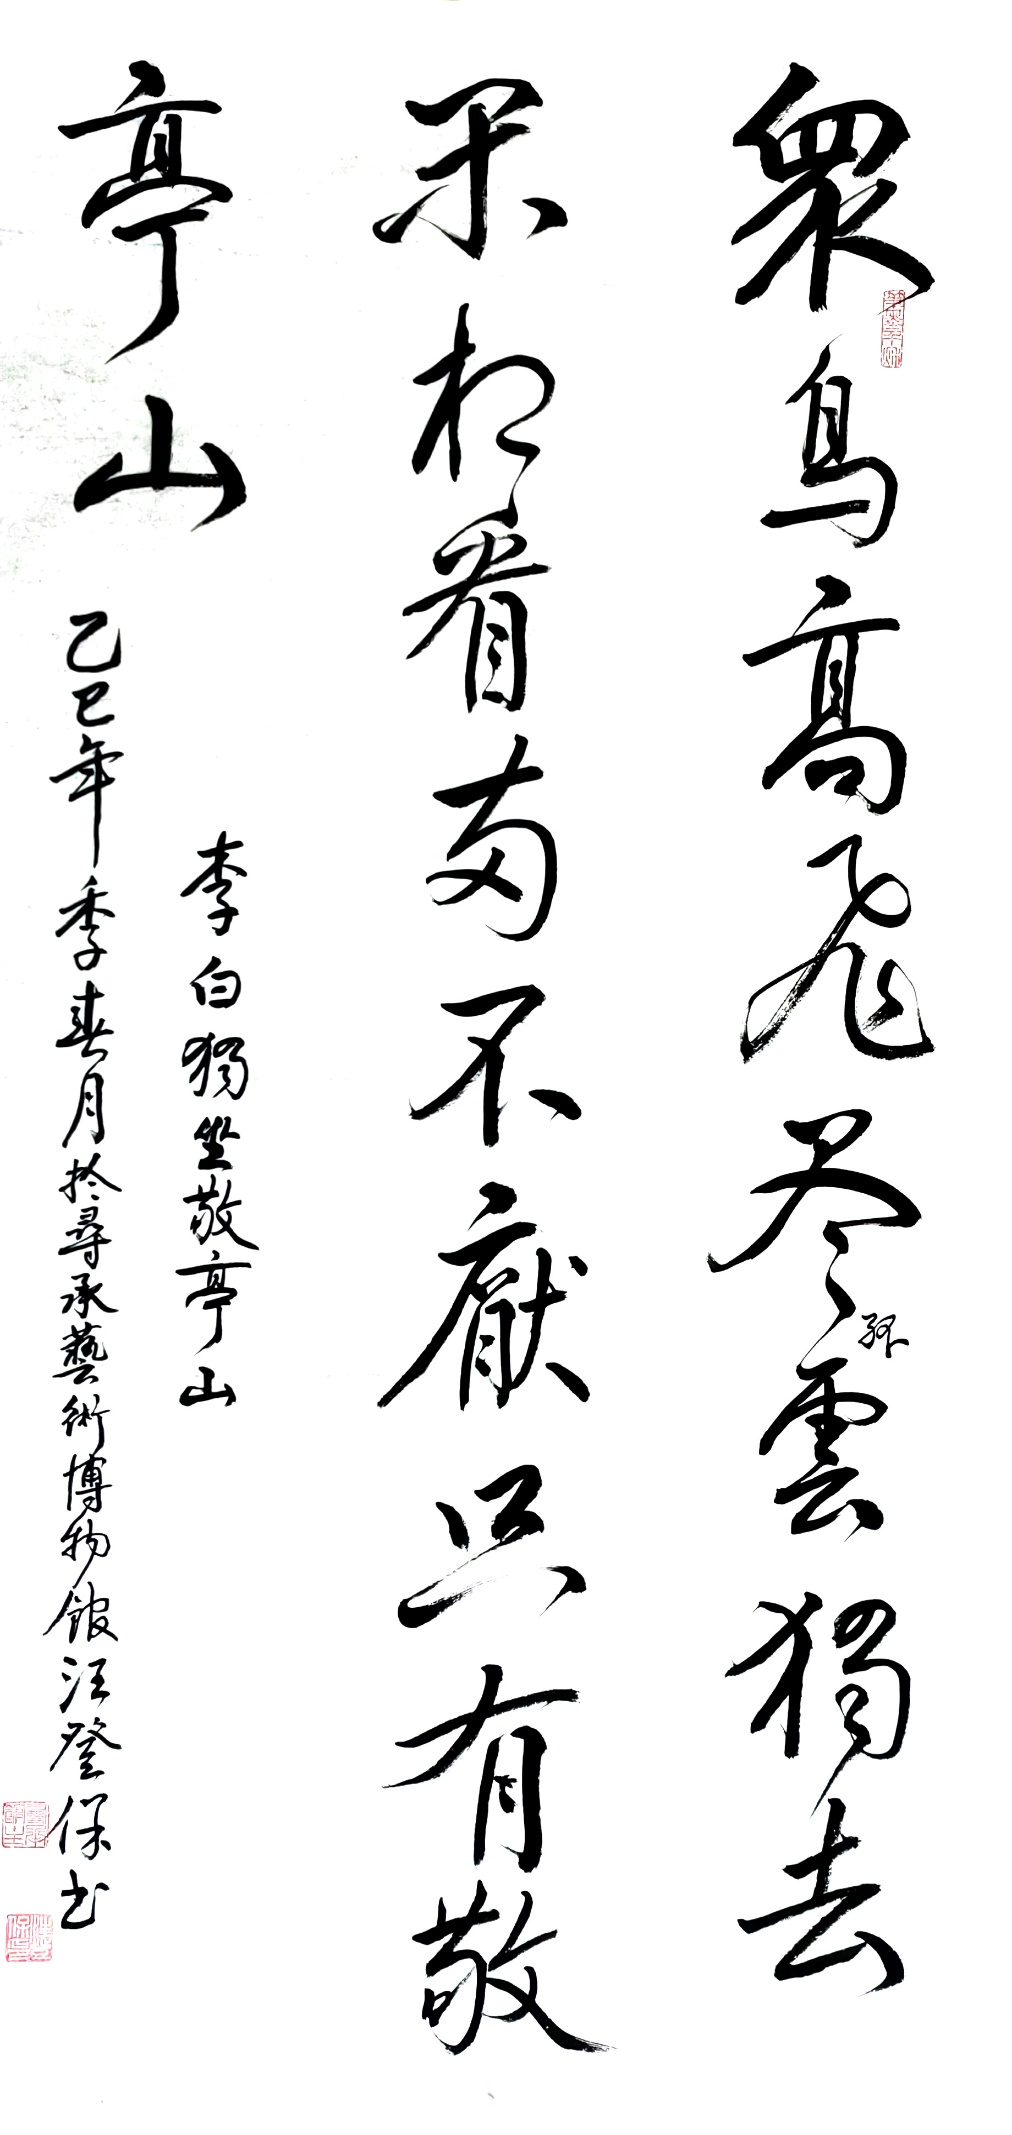 眾鳥高飛尽孤雲獨去
闲相看两不厭只有敬
亭山
李白獨坐敬亭山
乙巳年季春月於尋承藝術博物館汪登保书